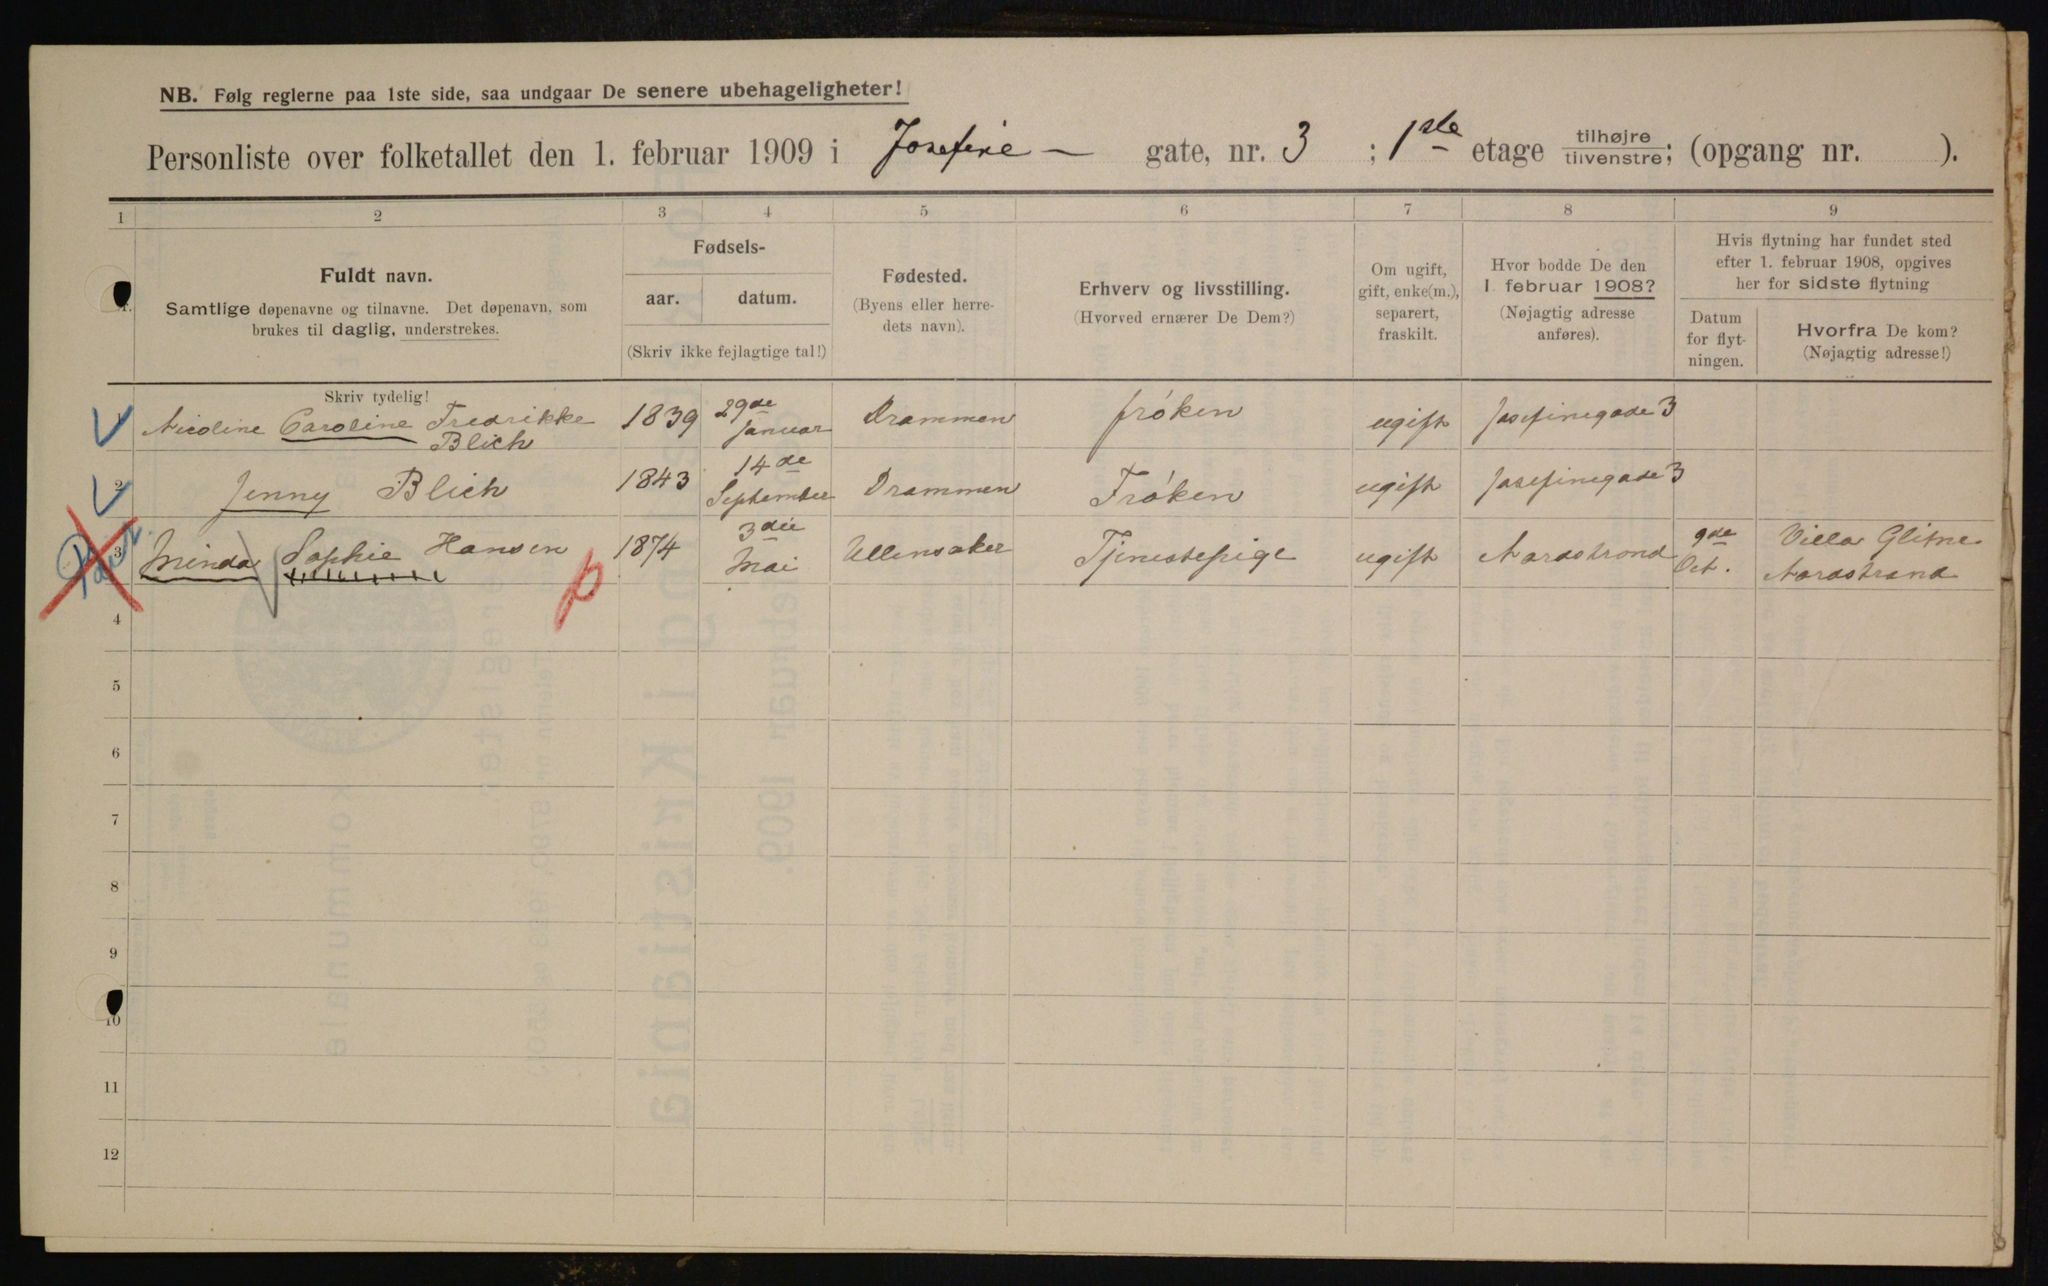 NB. Følg reglerne paa 1ste side, saa undgaar De senere ubehageligheter!
Personliste over folketallet den 1. februar 1909 i Josefine — gate, nr. 3 ; 1ste etage tilhøjre tilvenstre; (opgang nr. ).
1 2 3 4 5 6 7 8 9
Fuldt navn.
Samtlige døpenavne og tilnavne. Det døpenavn, som
brukes til daglig, understrekes.
Fødsels-
aar. datum.
(Skriv ikke fejlagtige tal!)
Fødested.
(Byens eller herre-
dets navn).
Erhverv og livsstilling.
(Hvorved ernærer De Dem?)
Om ugift,
gift, enke(m.),
separert,
fraskilt.
Hvor bodde De den
1. februar 1908?
(Nøjagtig adresse
anføres).
Hvis flytning har fundet sted
efter 1. februar 1908, opgives
her for sidste flytning
Datum
for flyt-
ningen.
Hvorfra De kom?
(Nøjagtig adresse!)
Skriv tydelig!
1 Nicoline Caroline Fredrikke Blich 1839 29de Januar Drammen frøken ugift Josefinegade 3
2 Jenny Blich 1843 14de September Drammen Frøken ugift Josefinegade 3
3 Minda Sophie Hansen 1874 3die Mai Ullensaker Tjenestepige ugift Nordstrand 9de Oct. Villa Glitne Nordstrand
4
5
6
7
8
9
10
11
12